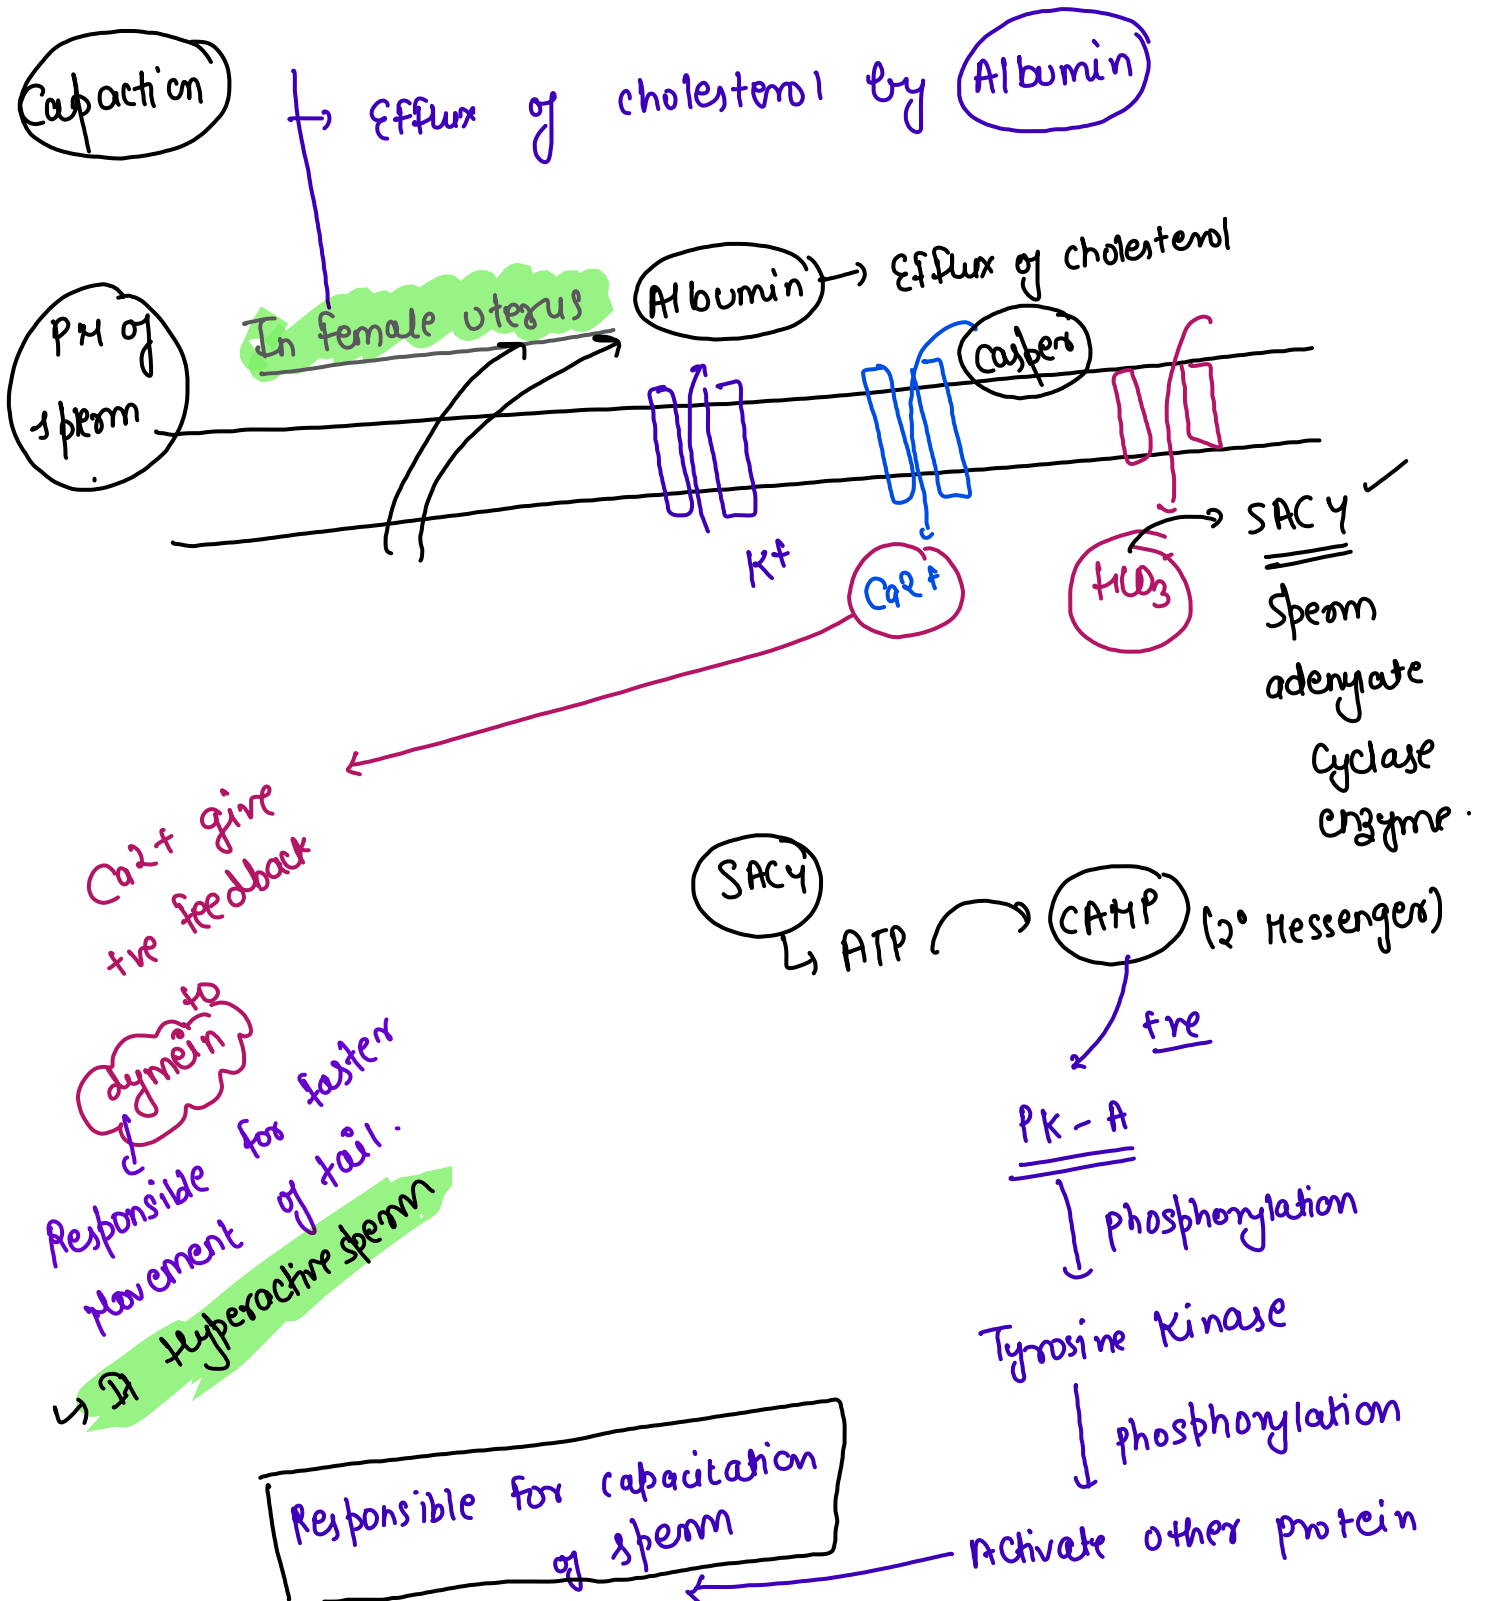 Capaction
Efflux of cholesterol by Albumin
PM of
sperm
In female uterus
Albumin → Efflux of cholesterol
Casper
K+
Ca2+
HCO3
SACY
Sperm
adenyate
cyclase
enzyme.
Ca2+ give
+ve feedback
to
dymein
Responsible for faster
Movement of tail.
Hyperactive sperm
SACY
ATP
CAMP (2° Messenger)
+ve
PK-A
phosphorylation
Tyrosine Kinase
phosphorylation
Activate other protein
Responsible for capacitation
of sperm